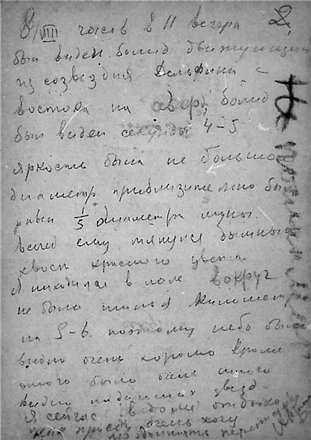 8/VIII часов в 11 вечера 2.
был виден болид движущийся
из созвездия Дельфина с
востока на север, болид
был виден секунды 4-5
яркость была не большая
диаметр приблизительно был
равен 1/5 диаметра луны.
Вслед ему тянулся дымный
хвост красного цвета
Я находился в поле вокруг
не было жилья километров
на 5-6 поэтому небо было
видно очень хорошо кроме
этого было очень много
падающих звезд
Я сейчас в доме отдыха
очень хочу
Не